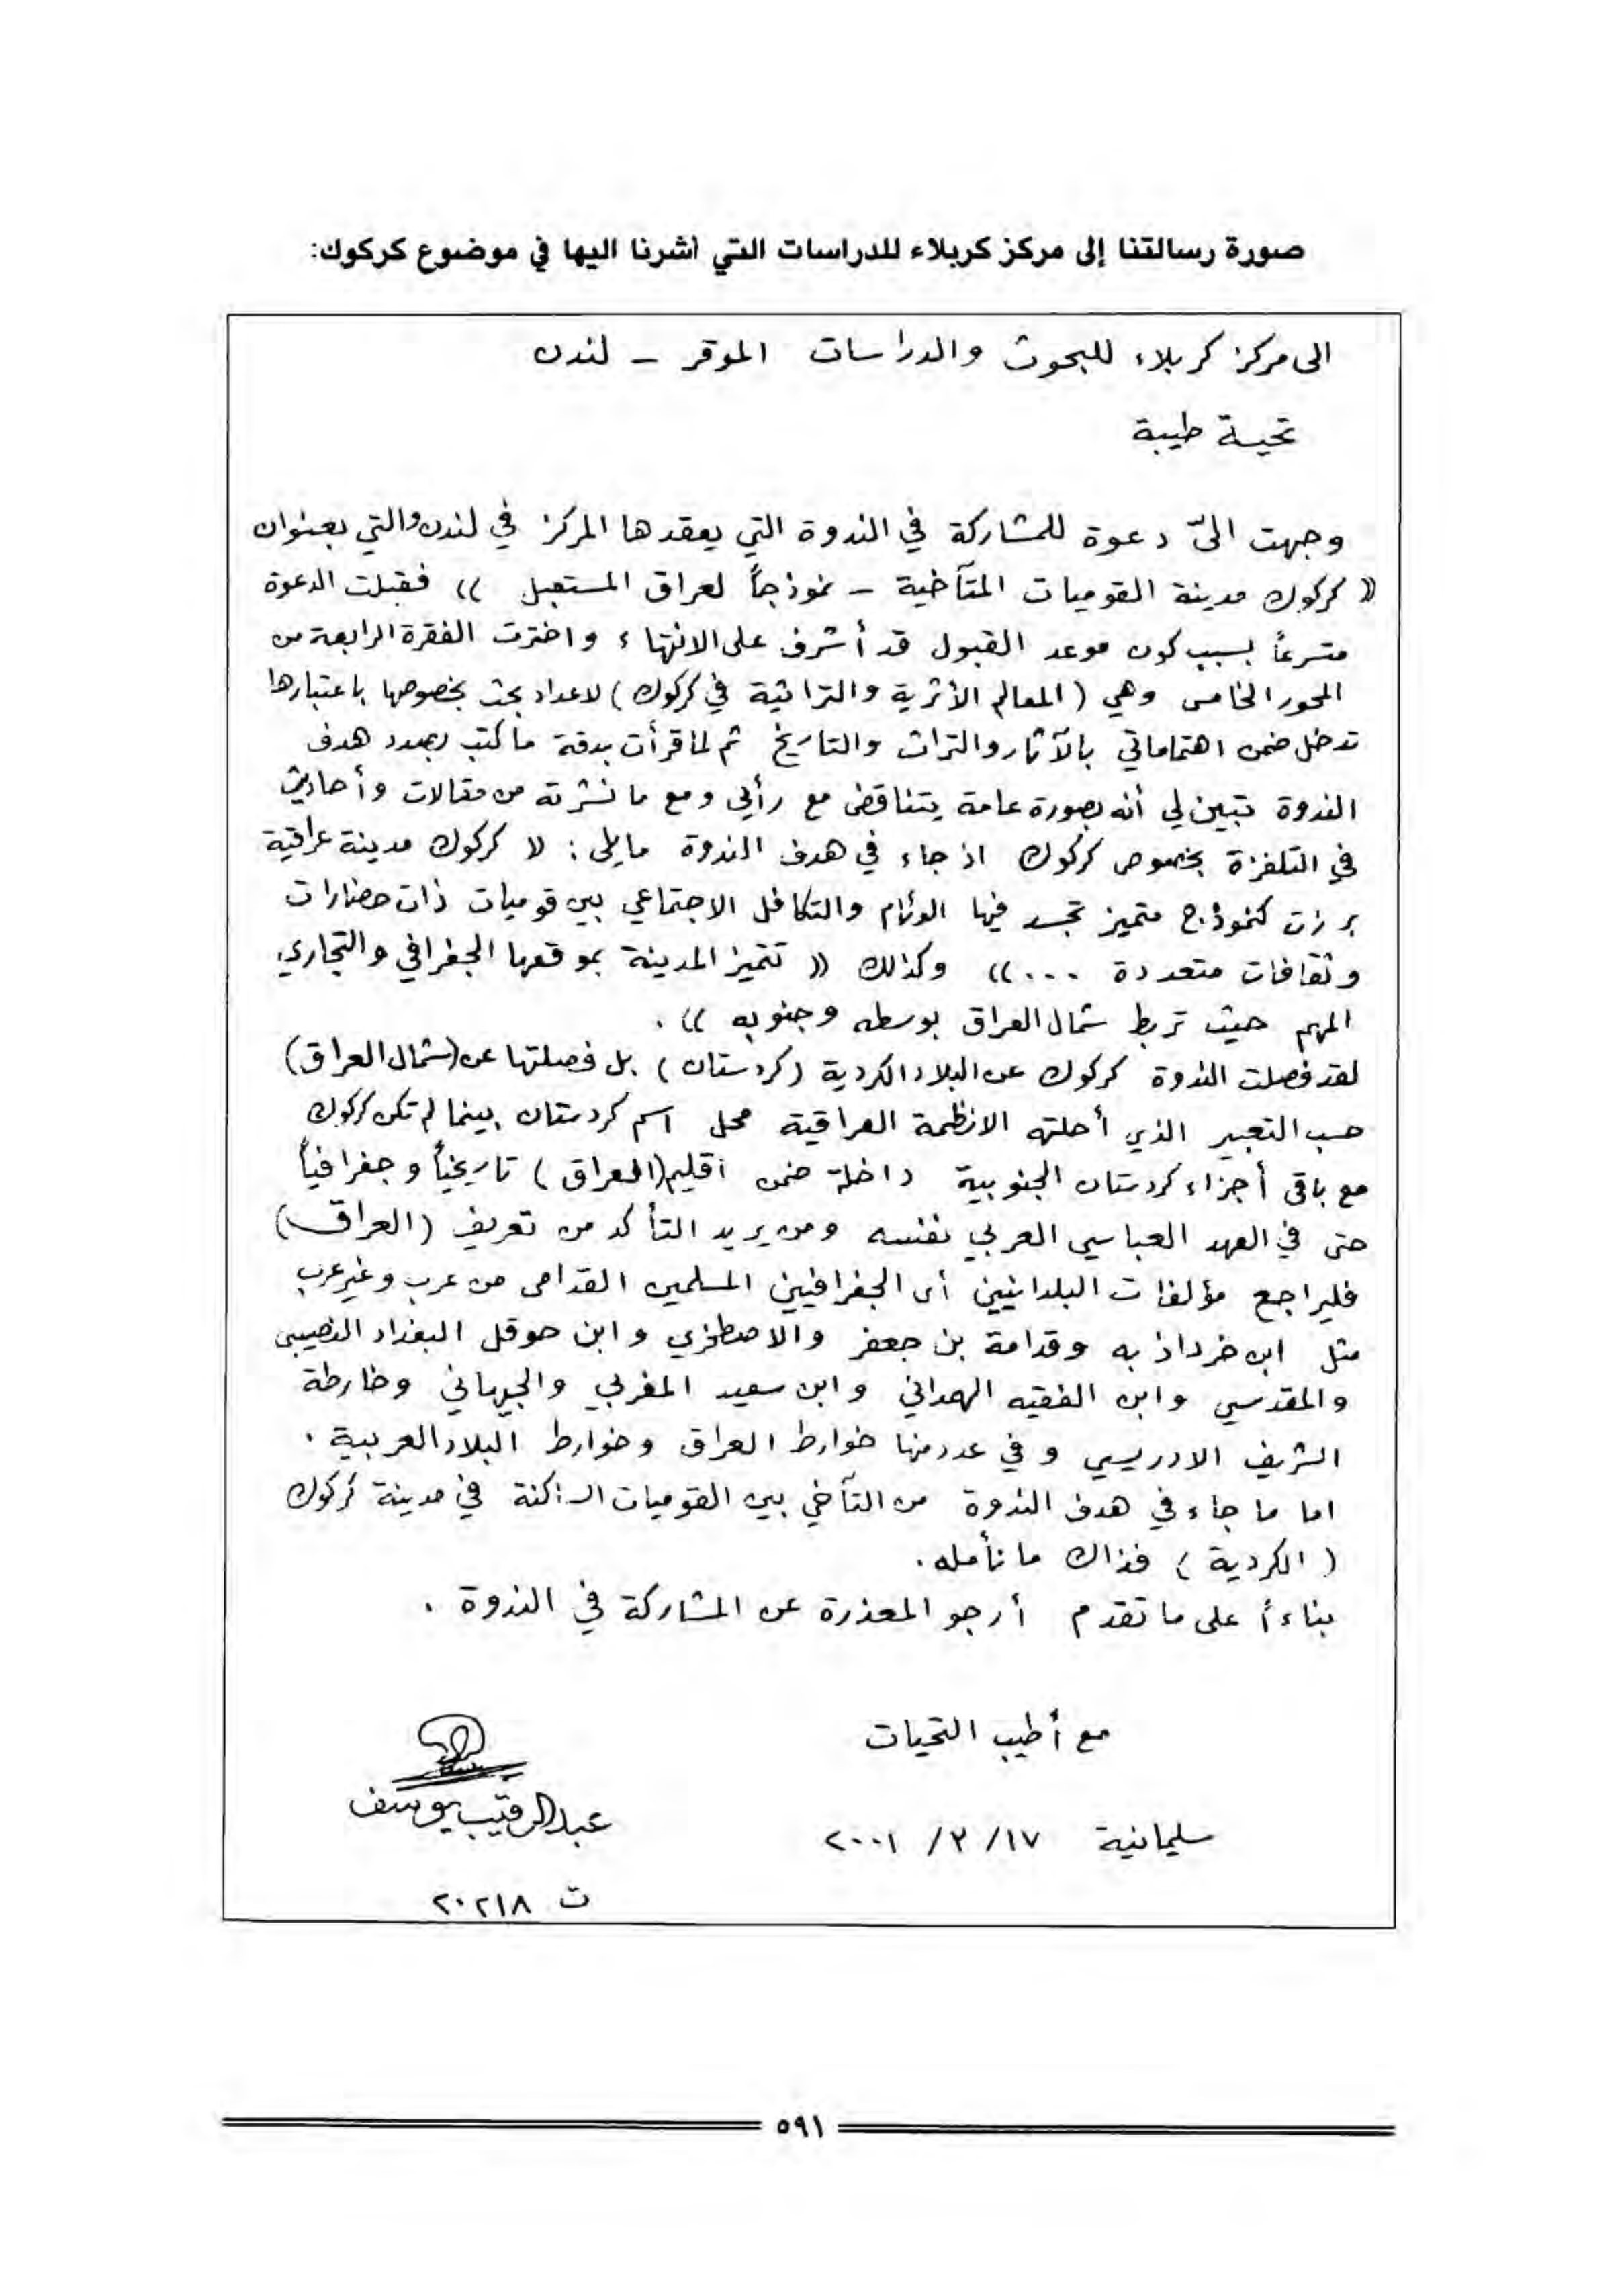 صورة رسالتنا إلى مركز كربلاء للدراسات التي أشرنا اليها في موضوع كركوك:
الى مركز كربلاء للبحوث والدراسات الموقر - لندن
تحية طيبة
وجهت اليّ دعوة للمشاركة في الندوة التي يعقدها المركز في لندن والتي بعنوان
(( كركوك مدينة القوميات المتآخية - نموذجاً لعراق المستقبل )) فقبلت الدعوة
متسرعاً بسبب كون موعد القبول قد أشرف على الانتهاء واخترت الفقرة الرابعة من
المحور الخامس وهي (المعالم الأثرية والتراثية في كركوك) لاعداد بحث بخصوصها باعتبارها
تدخل ضمن اهتماماتي بالآثار والتراث والتاريخ ثم لما قرأت بدقة ما كتب بصدد هدف
الندوة تبين لي أنه بصورة عامة يتناقض مع رأيي ومع ما نشرته من مقالات وأحاديث
في التلفزة بخصوص كركوك اذ جاء في هدف الندوة مايلي: (( كركوك مدينة عراقية
برزت كنموذج متميز تجسد فيها الوئام والتكافل الاجتماعي بين قوميات ذات حضارات
وثقافات متعددة ...)) وكذلك (( تتميز المدينة بموقعها الجغرافي والتجاري
المهم حيث تربط شمال العراق بوسطه وجنوبه )) .
لقد فصلت الندوة كركوك عن البلاد الكردية (كردستان) بل فصلتها عن (شمال العراق)
حسب التعبير الذي أحلته الانظمة العراقية محل اسم كردستان بينما لم تكن كركوك
مع باقي أجزاء كردستان الجنوبية داخلة ضمن اقليم (العراق) تاريخياً وجغرافياً
حتى في العهد العباسي العربي نفسه ومن يريد التأكد من تعريف (العراق)
فليراجع مؤلفات البلدانيين أي الجغرافيين المسلمين القدامى من عرب وغير عرب
مثل ابن خرداذبه وقدامة بن جعفر والاصطخري وابن حوقل البغداد النصيبي
والمقدسي وابن الفقيه الهمداني وابن سعيد المغربي والجيهاني وخارطة
الشريف الادريسي وفي عدد منها خوارط العراق وخوارط البلاد العربية .
اما ما جاء في هدف الندوة من التآخي بين القوميات الساكنة في مدينة كركوك
( الكردية ) فذاك ما نأمله .
بناءاً على ما تقدم أرجو المعذرة عن المشاركة في الندوة .
مع أطيب التحيات
عبدالرقيب يوسف
سليمانية ١٧/ ٣/ ٢٠٠١
ت ٢٠٢١٨
٥٩١